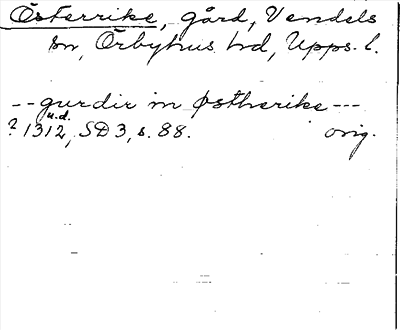 Österrike, gård, Vendels
sn, Örbyhus hd, Upps. l.
-- gurdir in østherike ---
u.d.
? 1312, SD 3, s. 88. orig.